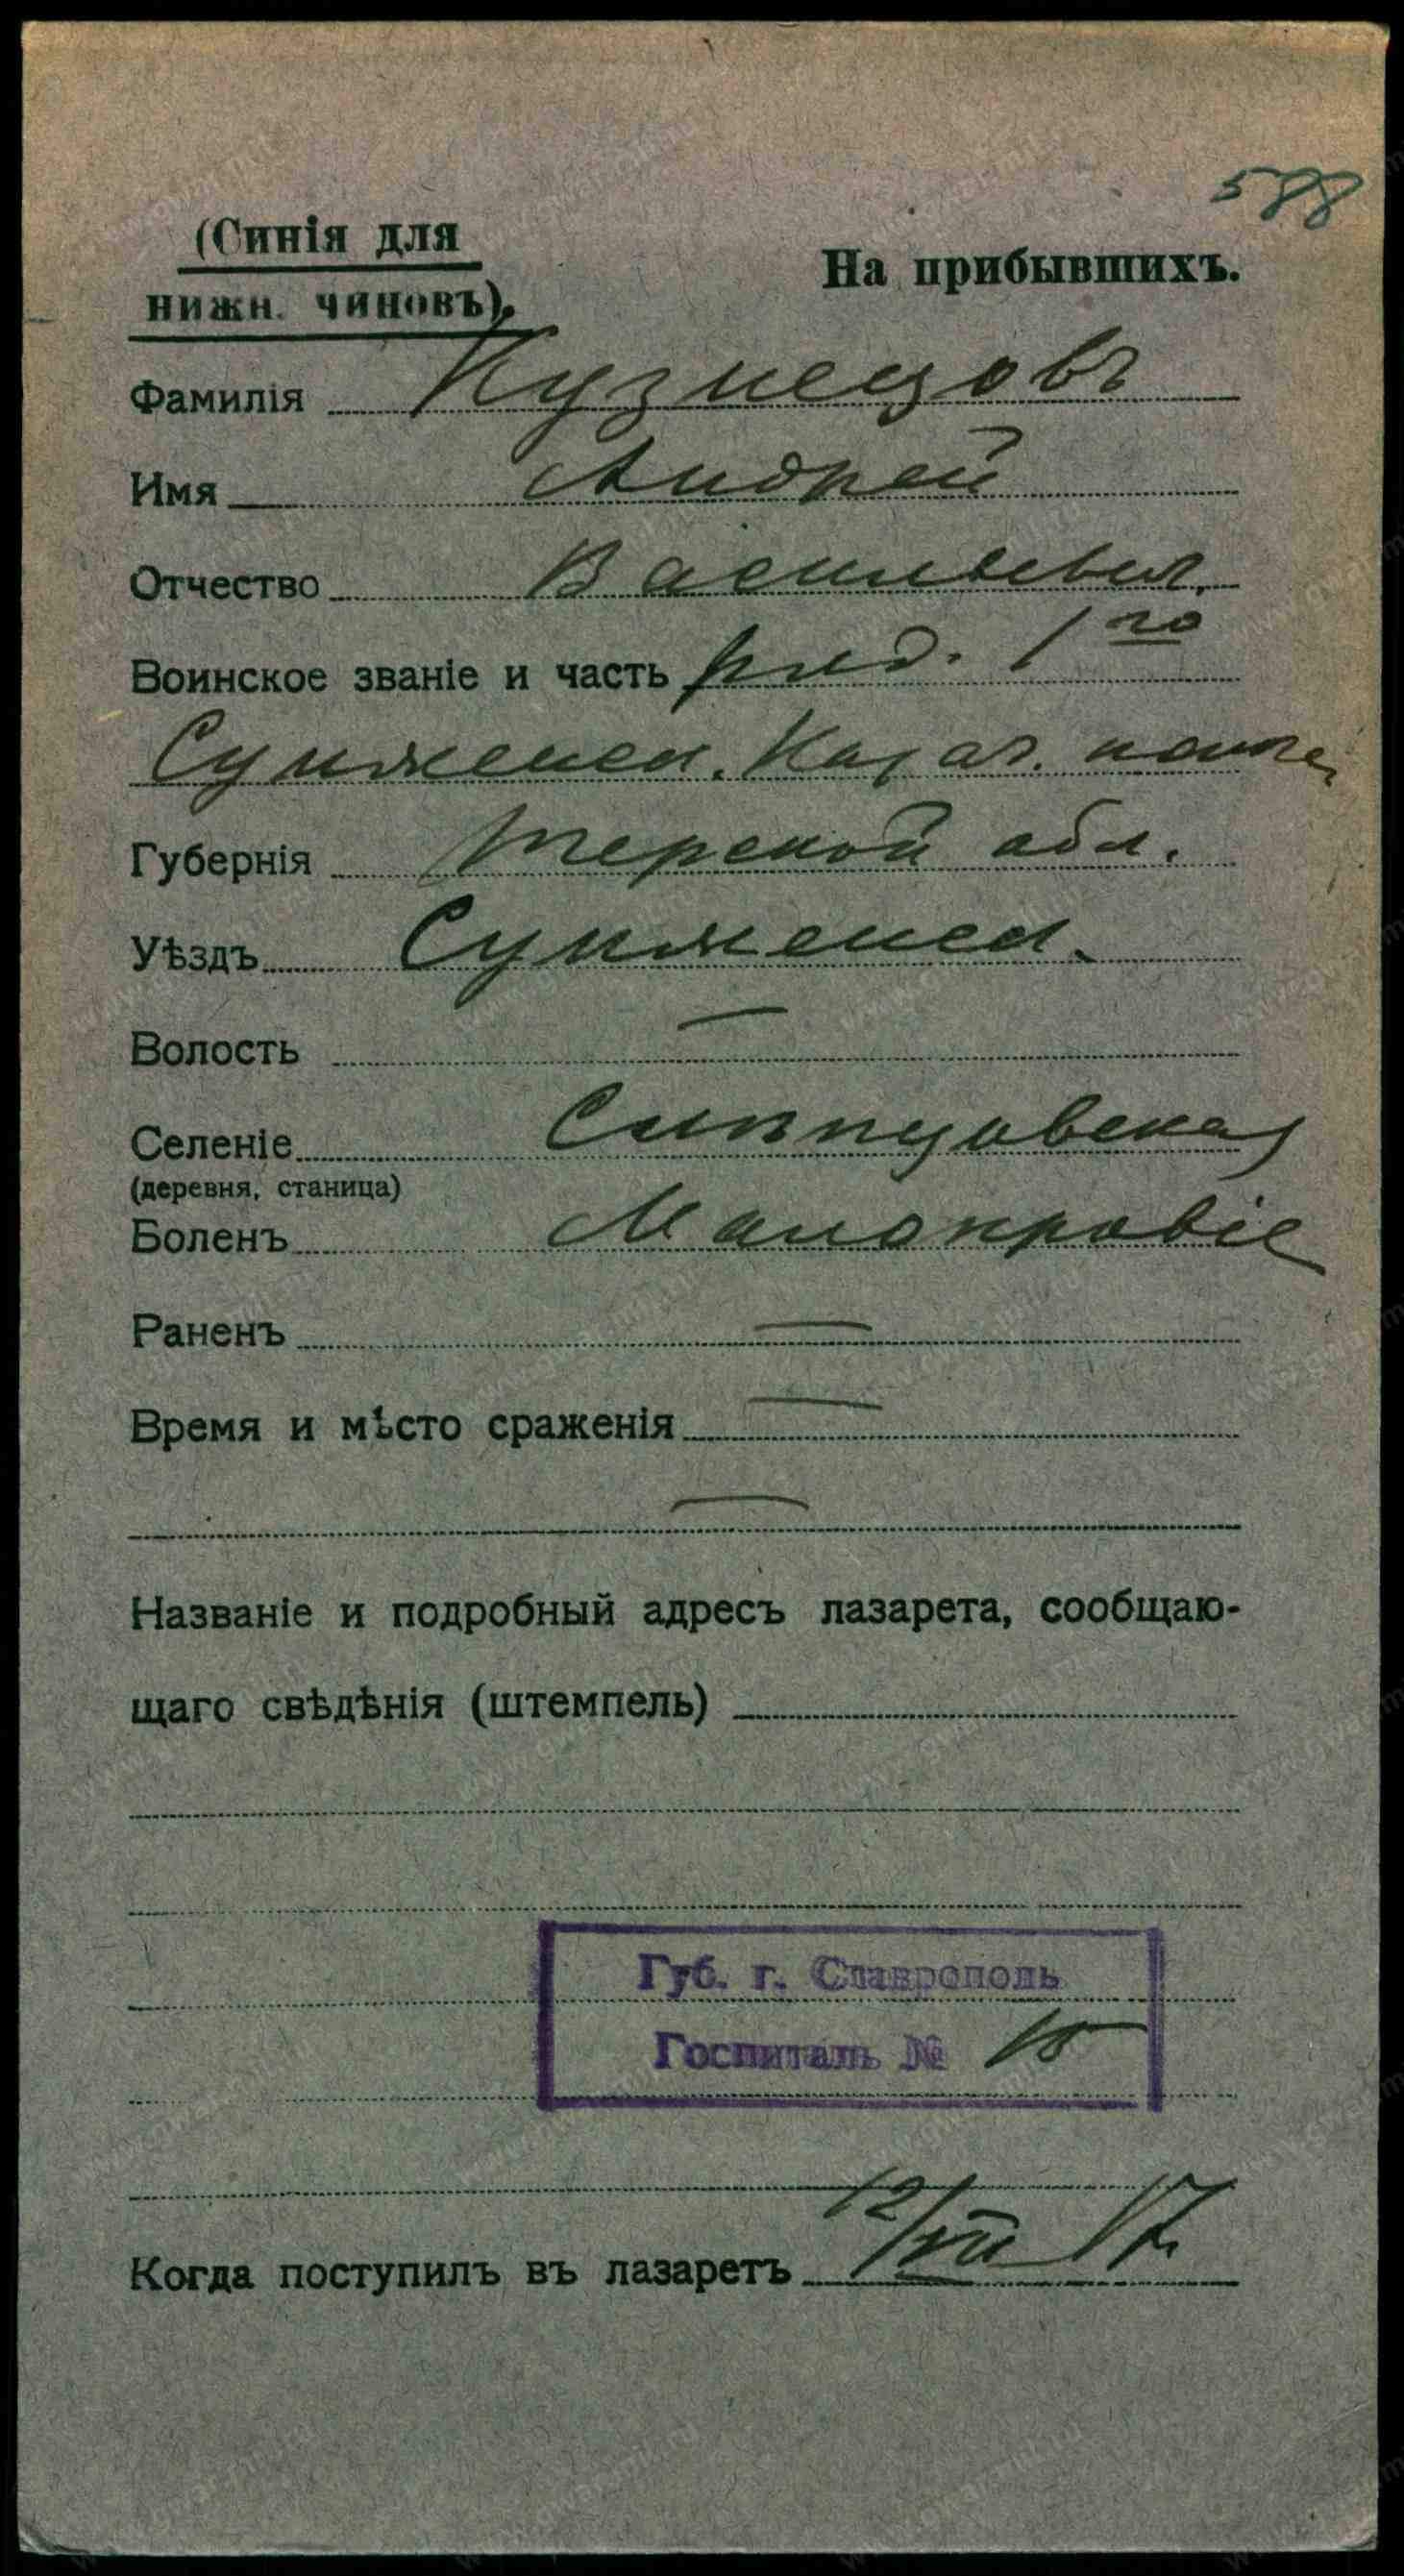 588
(Синія для
нижн. чиновъ).
На прибывшихъ.
Фамилія Кузнецовъ
Имя Андрей
Отчество Васильевич.
Воинское званіе и часть ряд. 1го
Сунженск. Казач. полка
Губернія Терской обл.
Уѣздъ Сунженск.
Волость —
Селеніе Слепцовская
(деревня, станица)
Боленъ Малокровіе
Раненъ —
Время и мѣсто сраженія —
—
Названіе и подробный адресъ лазарета, сообщаю-
щаго свѣдѣнія (штемпель)
Губ. г. Ставрополь
Госпиталь № 10
Когда поступилъ въ лазаретъ 12/VII 17